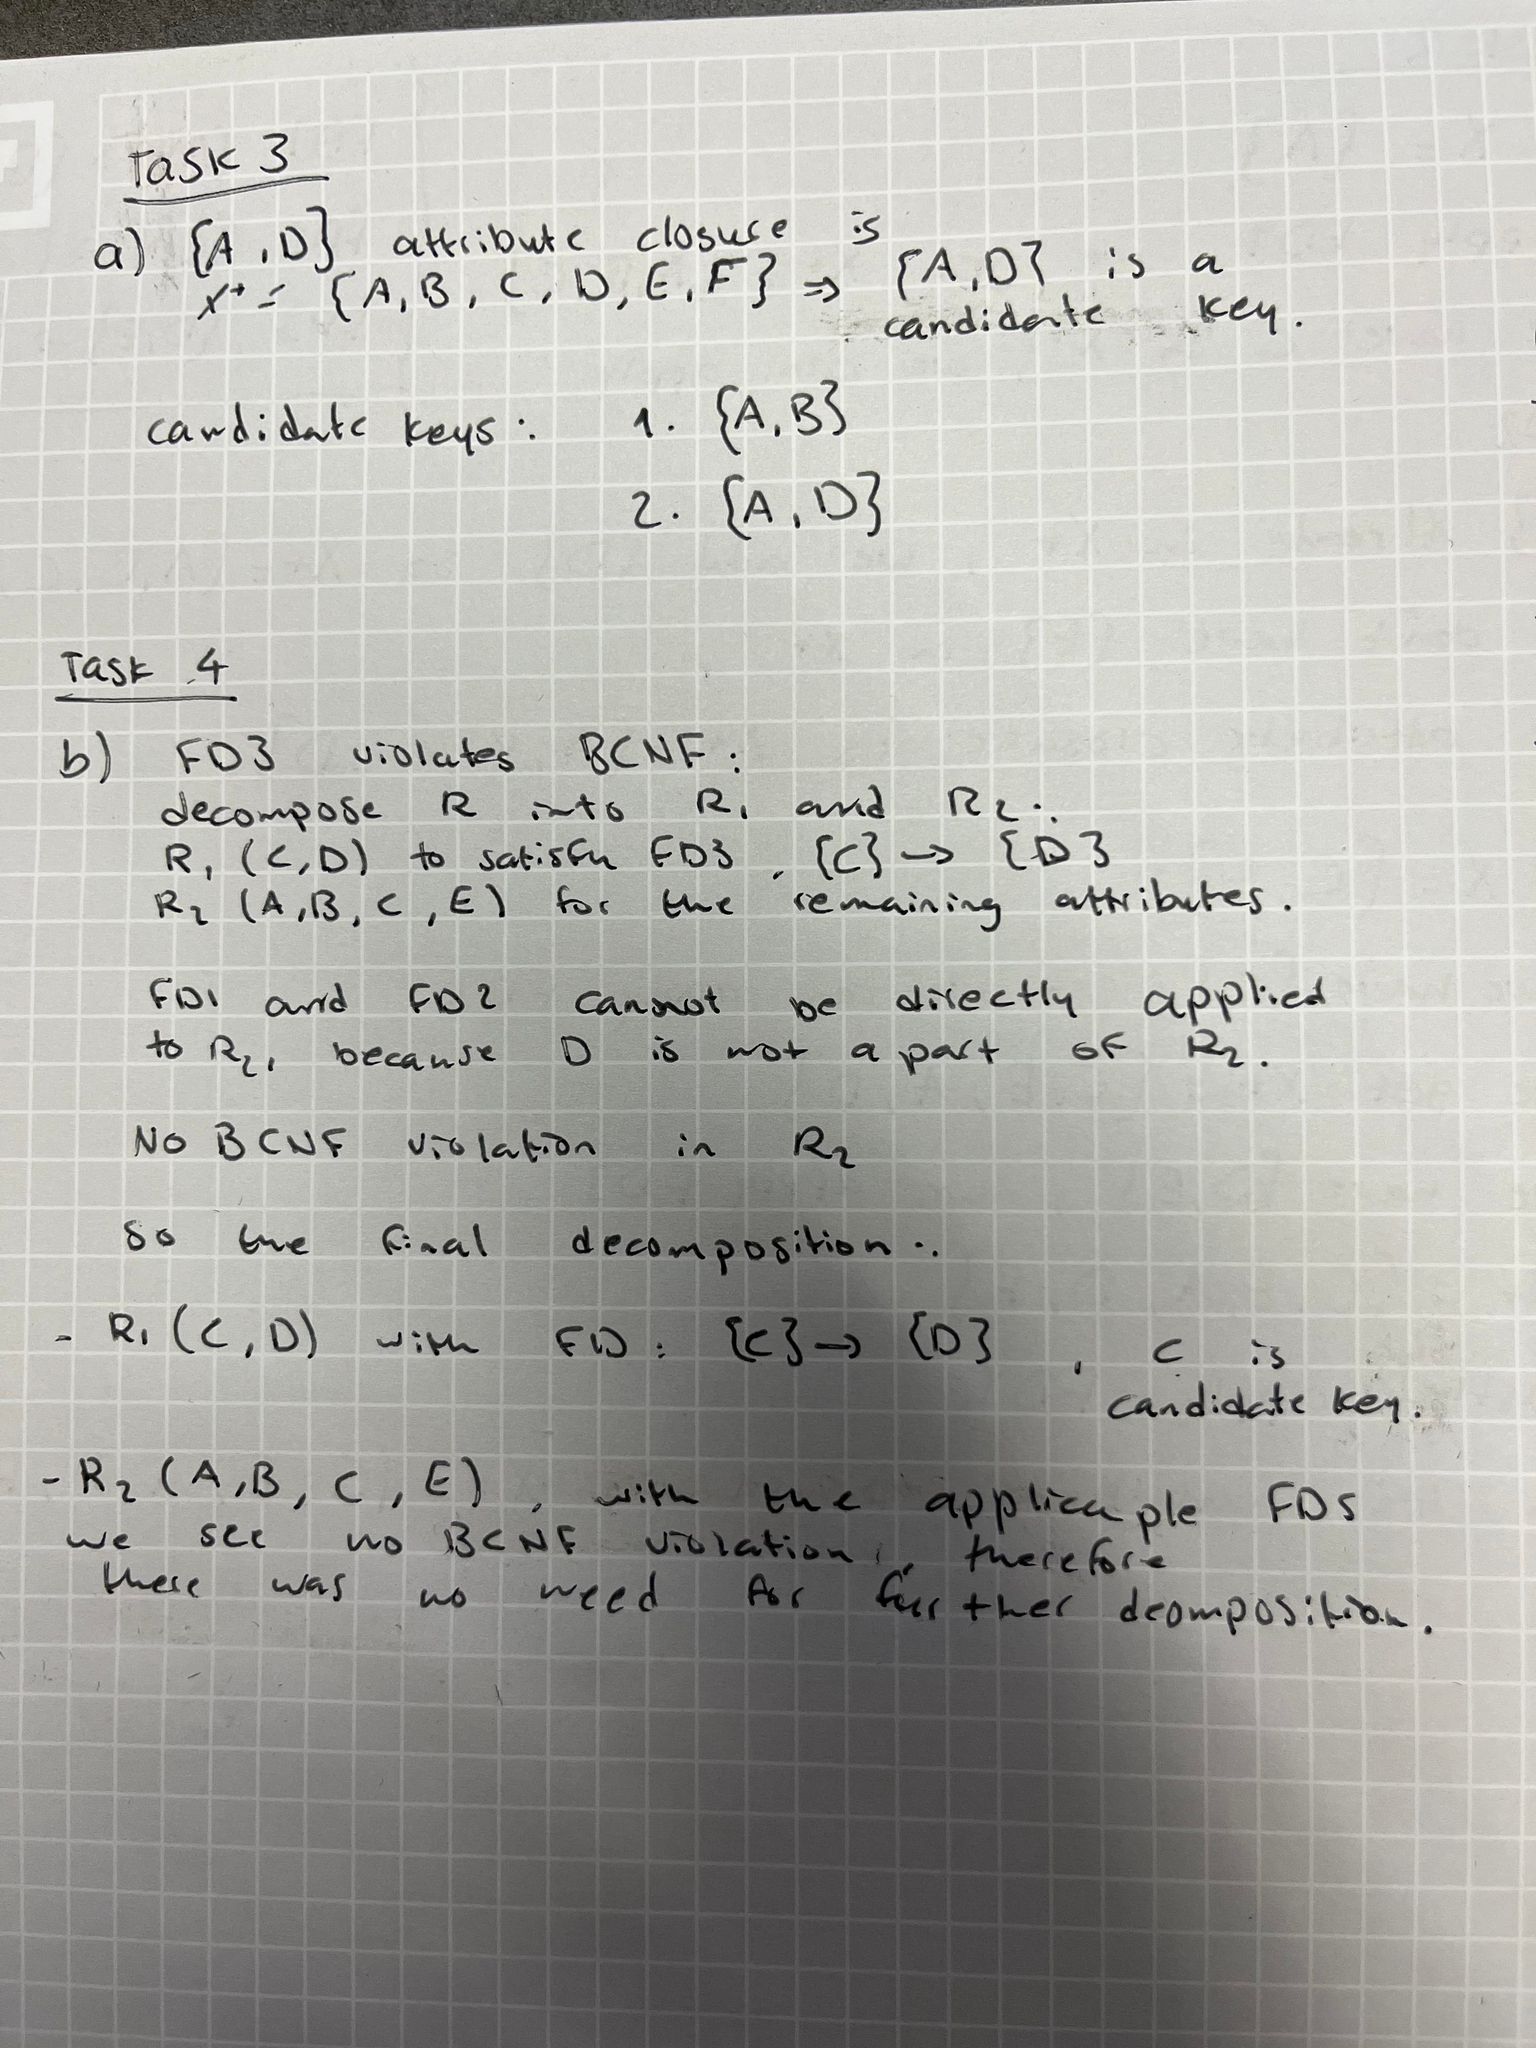 Task 3
a) {A,D} attribute closure is
x⁺ = {A,B,C,D,E,F} ⇒ {A,D} is a
candidate key.
candidate keys: 1. {A,B}
2. {A,D}
Task 4
b) FD3 violates BCNF:
decompose R into R₁ and R₂:
R₁ (C,D) to satisfy FD3, {C} → {D}
R₂ (A,B,C,E) for the remaining attributes.
FD1 and FD2 cannot be directly applied
to R₂, because D is not a part of R₂.
No BCNF violation in R₂
so the final decomposition:
- R₁ (C,D) with FD: {C} → {D}, C is
candidate key.
- R₂ (A,B,C,E), with the applicaple FDs
we see no BCNF violation, therefore
there was no need for further dcomposition.